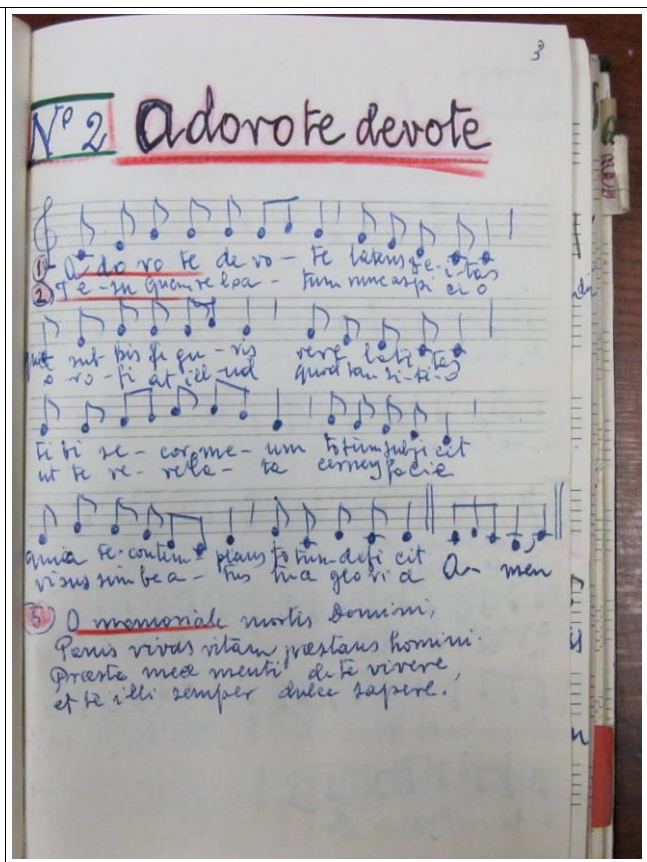 3
Nº 2 Adorote devote
1) A do ro te de vo - te latens de - i - tas
2) Je - su quem vela - tum nunc aspi ci o
quae sub his figu - ris vere lati - tas
o - ro - fi at ill - ud quod tam si - ti - o
ti bi se - cor me - um totum subji cit
ut te re - vela - ta cernens facie
quia te - contem - plans totum - defi cit
visus sim bea - tus tuae gloriae A - men
3) O memoriale mortis Domini,
Panis vivus vitam praestans homini.
Praesta meae menti de te vivere,
et te illi semper dulce sapere.